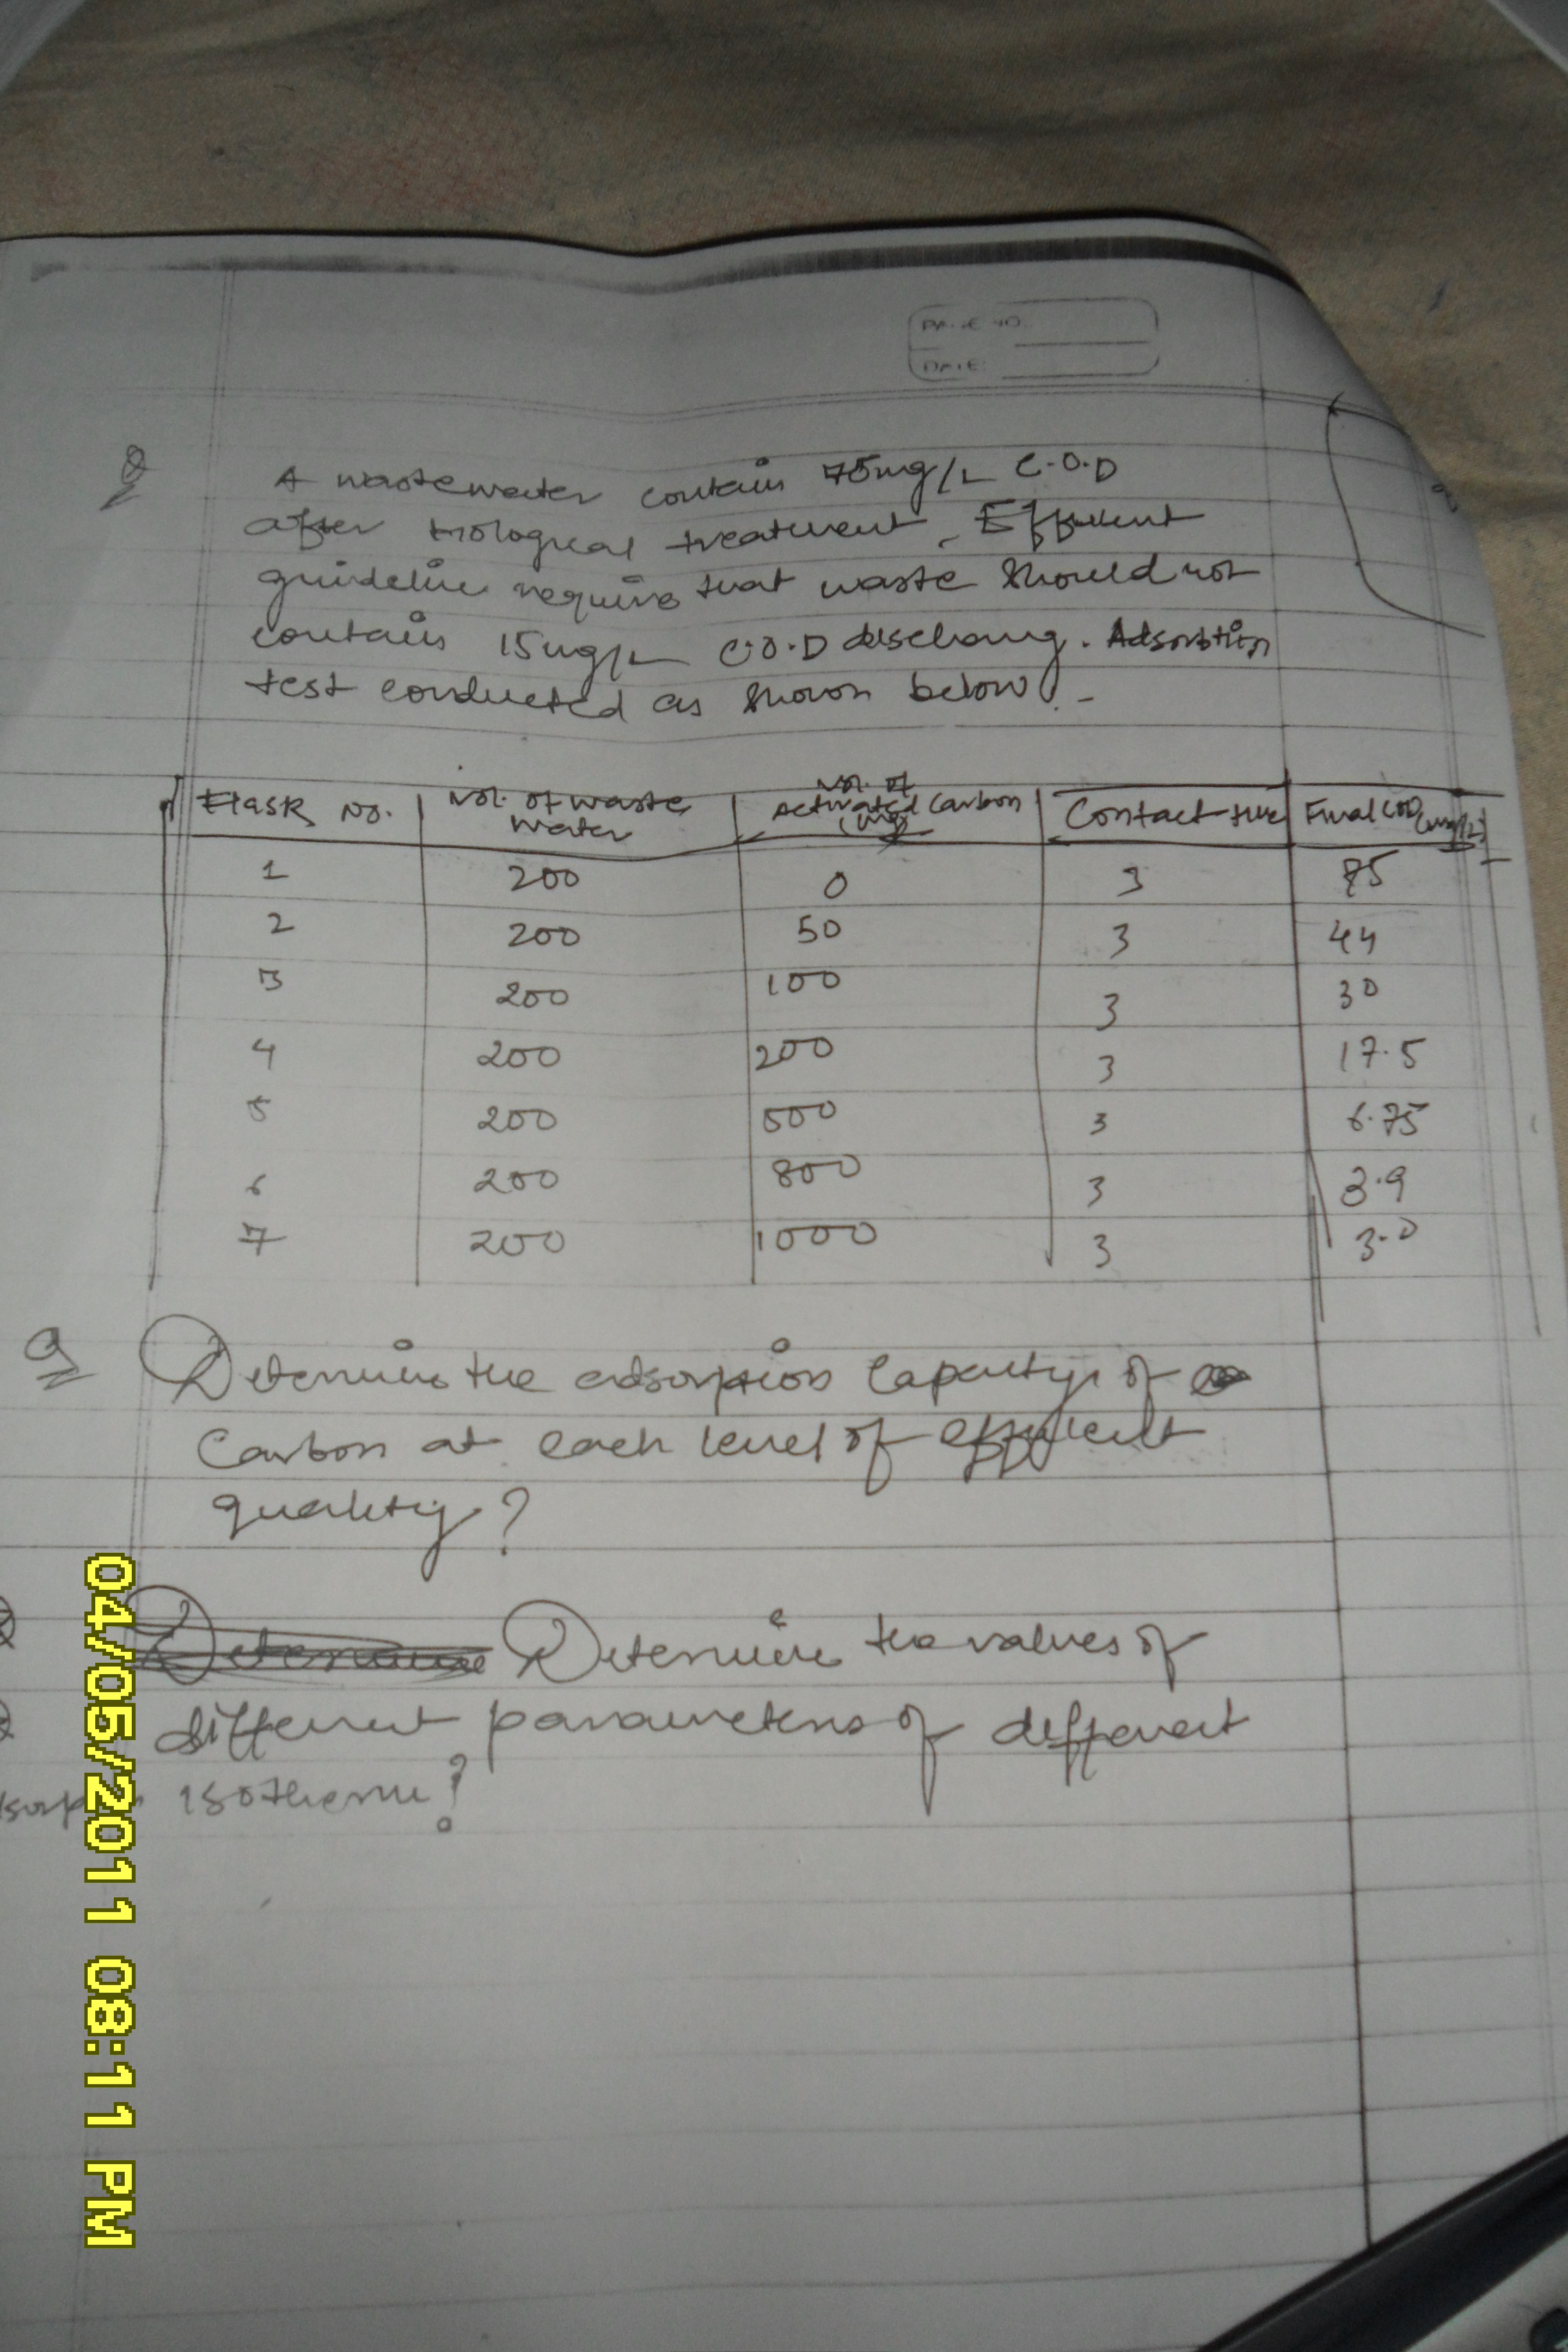 PAGE NO.
DATE:
Q
A wastewater contain 75mg/L C.O.D
after biological treatment. Effluent
guideline require that waste should not
contain 15mg/L C.O.D discharg. Adsorbtion
test conducted as shown below:-
Flask No. Vol. of waste water Vol. of Activated Carbon (mg) Contact time Final COD (mg/L)
1 200 0 3 75
2 200 50 3 44
3 200 100 3 30
4 200 200 3 17.5
5 200 500 3 6.75
6 200 800 3 3.9
7 200 1000 3 3.0
Q Determine the adsorption capacity of
Carbon at each level of effluent
quality?
Determine the values of
different parameters of different
isotherm?
04/05/2011 08:11 PM